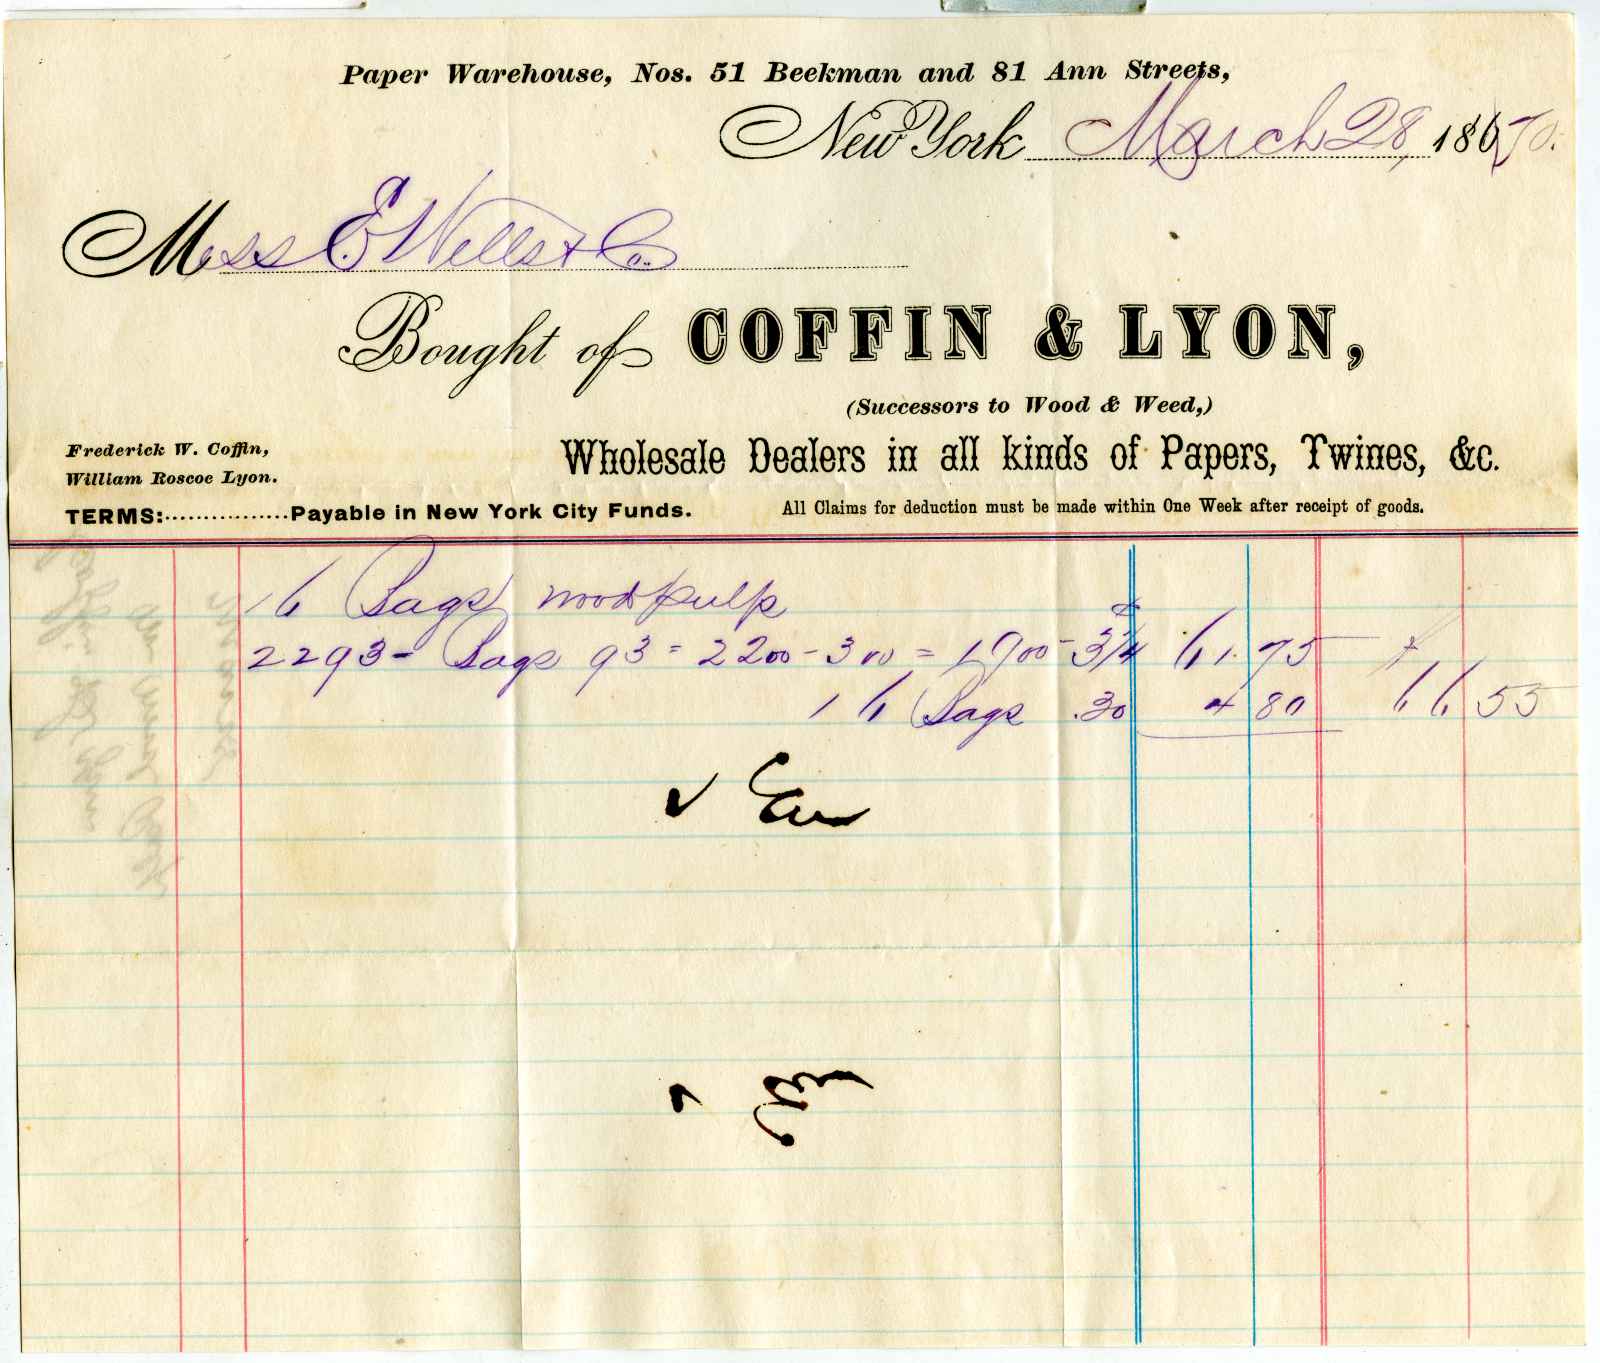 Paper Warehouse, Nos. 51 Beekman and 81 Ann Streets,
New York March 28, 1870.
Mess E. Wells & Co.
Bought of COFFIN & LYON,
(Successors to Wood & Weed,)
Frederick W. Coffin,
William Roscoe Lyon.
Wholesale Dealers in all kinds of Papers, Twines, &c.
TERMS:................Payable in New York City Funds.
All Claims for deduction must be made within One Week after receipt of goods.
16 Bags wood pulp
2293 - Bags 93 = 2200 - 300 = 1900 - 3 1/4 61.75
16 Bags .30 4 80 66 55